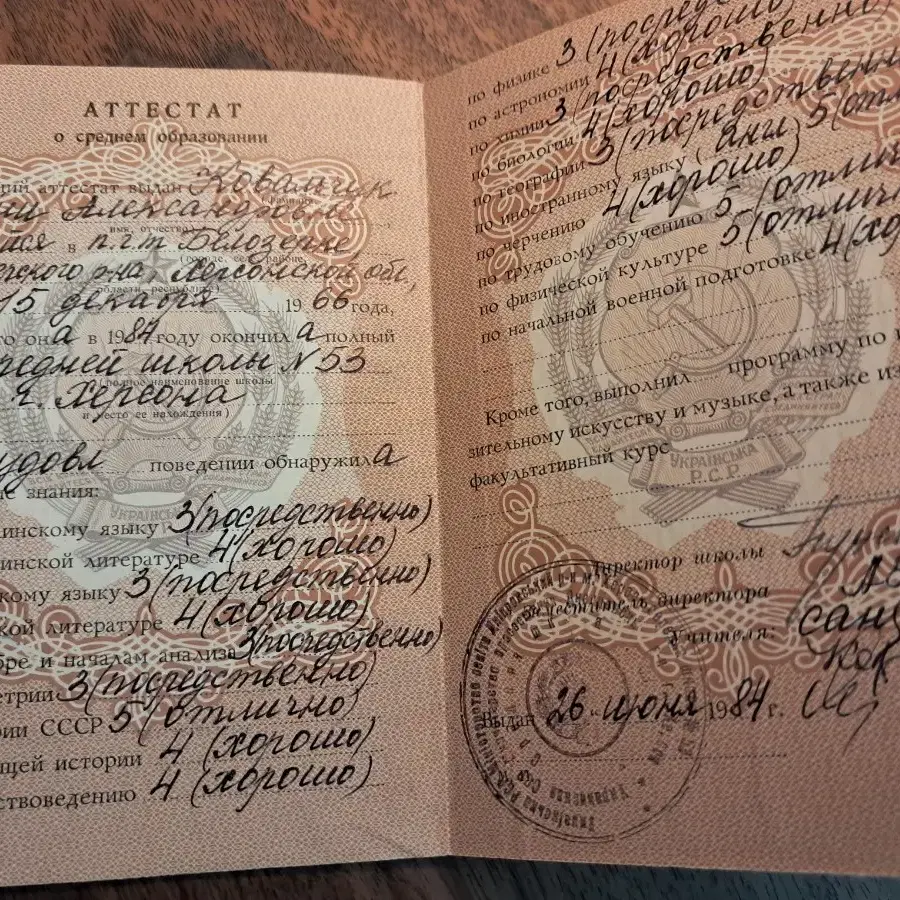 АТТЕСТАТ
о среднем образовании
ий аттестат выдан Ковальчук
Александровна
имя, отчество
в п.г.т Белозерке
(городе, селе, районе,
р-на, Херсонской обл,
области, республики)
15 декабря 1966 года,
то она в 1984 году окончила полный
редней школы N 53
(полное наименование школы
г. Херсона
и место ее нахождения)
удовл поведении обнаружила
е знания:
инскому языку 3 (посредственно)
инской литературе 4 (хорошо)
скому языку 3 (посредственно)
кой литературе 4 (хорошо)
бре и началам анализа 3 (посредственно)
етрии 3 (посредственно)
рии СССР 5 (отлично)
щей истории 4 (хорошо)
ствоведению 4 (хорошо)
УКРАЇНСЬК
по физике 3 (посредст
по астрономии 4 (хорошо)
по химии 3 (посредственно)
по биологии 4 (хорошо)
по географии 3 (посредственн
по иностранному языку (англ) 5 (отл
по черчению 4 (хорошо)
по трудовому обучению 5 (отлич
по физической культуре 5 (отличн
по начальной военной подготовке 4 (хор
Кроме того, выполнил программу по
зительному искусству и музыке, а также из
факультативный курс
УКРАЇНСЬКА
Р С Р
Директор школы
Заместитель директора
Учителя:
Выдан „26“ июня 1984 г.